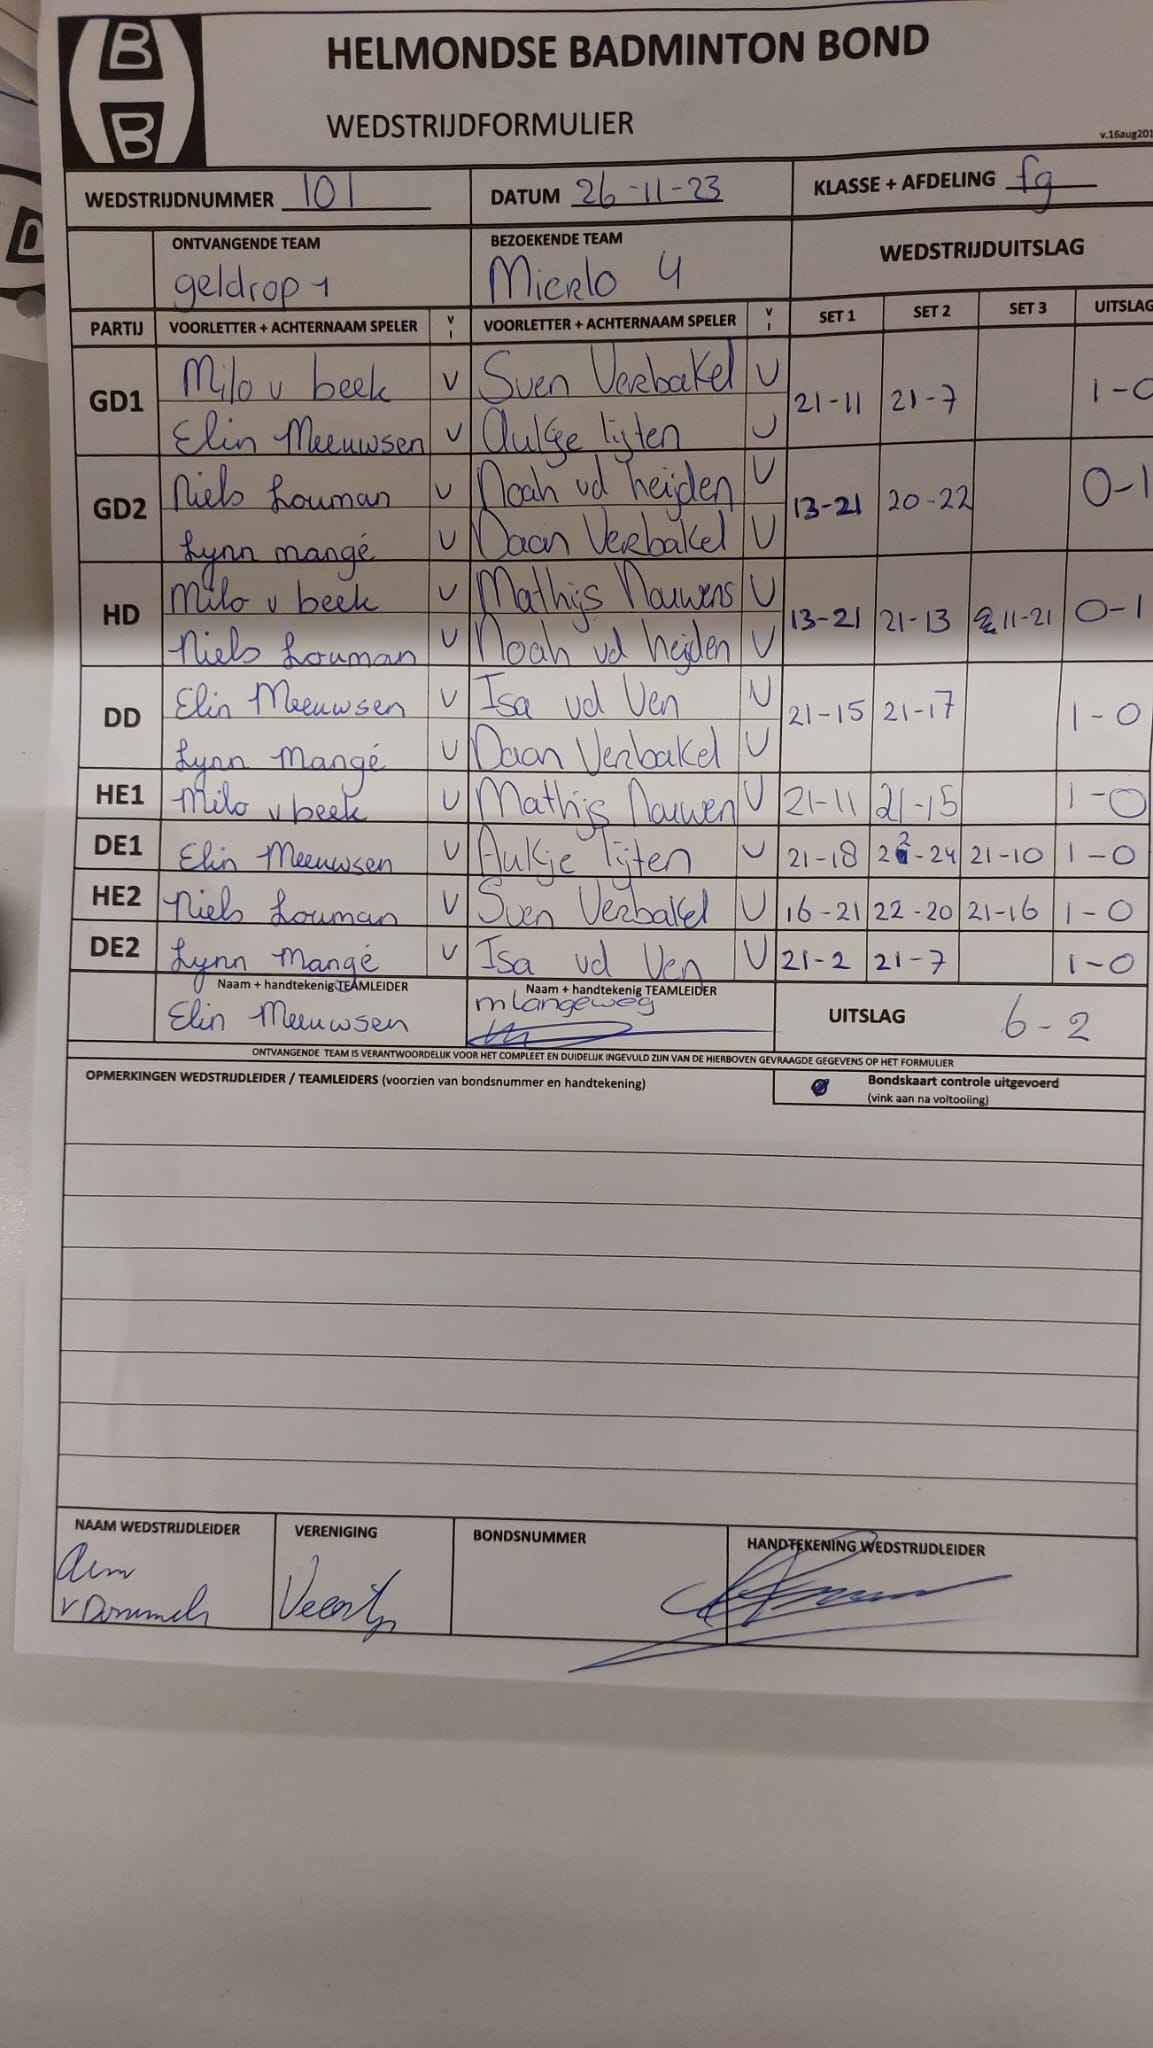 B
B
HELMONDSE BADMINTON BOND
WEDSTRIJDFORMULIER
v.16aug201
WEDSTRIJDNUMMER 101 DATUM 26-11-23 KLASSE + AFDELING fg
ONTVANGENDE TEAM BEZOEKENDE TEAM WEDSTRIJDUITSLAG
geldrop 1 Mierlo 4
PARTIJ VOORLETTER + ACHTERNAAM SPELER V I VOORLETTER + ACHTERNAAM SPELER V I SET 1 SET 2 SET 3 UITSLAG
GD1 Milo v beek V Sven Verbakel V 21-11 21-7 1-0
Elin Meeuwsen V Aukje lijten V
GD2 Niels Louman V Noah vd heijden V 13-21 20-22 0-1
Lynn mangé V Daan Verbakel V
HD Milo v beek V Mathijs Nauwens V 13-21 21-13 11-21 0-1
Niels Louman V Noah vd heijden V
DD Elin Meeuwsen V Isa vd Ven V 21-15 21-17 1-0
Lynn Mangé V Daan Verbakel V
HE1 Milo v beek V Mathijs Nauwen V 21-11 21-15 1-0
DE1 Elin Meeuwsen V Aukje lijten V 21-18 22-24 21-10 1-0
HE2 Niels Louman V Sven Verbakel V 16-21 22-20 21-16 1-0
DE2 Lynn Mangé V Isa vd Ven V 21-2 21-7 1-0
Naam + handtekenig TEAMLEIDER Naam + handtekening TEAMLEIDER
Elin Meeuwsen m Langeweg UITSLAG 6-2
ONTVANGENDE TEAM IS VERANTWOORDELIJK VOOR HET COMPLEET EN DUIDELIJK INGEVULD ZIJN VAN DE HIERBOVEN GEVRAAGDE GEGEVENS OP HET FORMULIER
OPMERKINGEN WEDSTRIJDLEIDER / TEAMLEIDERS (voorzien van bondsnummer en handtekening) Bondskaart controle uitgevoerd
(vink aan na voltooiing)
NAAM WEDSTRIJDLEIDER VERENIGING BONDSNUMMER HANDTEKENING WEDSTRIJDLEIDER